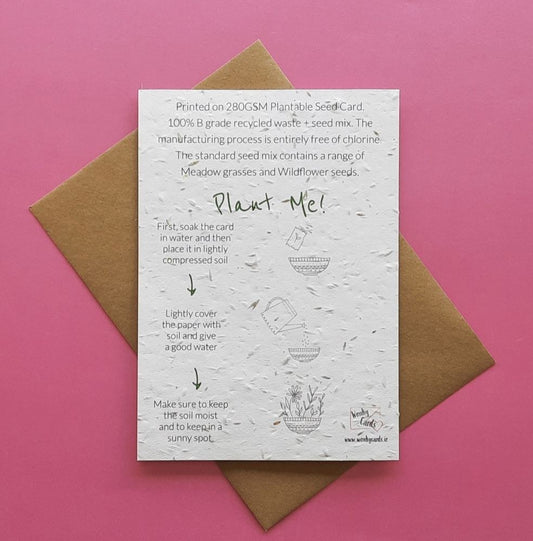 Printed on 280GSM Plantable Seed Card.
100% B grade recycled waste + seed mix. The
manufacturing process is entirely free of chlorine
The standard seed mix contains a range of
Meadow grasses and Wildflower seeds.
Plant Me!
First, soak the card
in water and then
place it in lightly
compressed soil
Lightly cover
the paper with
soil and give
a good water
Make sure to keep
the soil moist
and to keep in a
sunny spot.
Wenby
Cards
www.wenbycards.ie